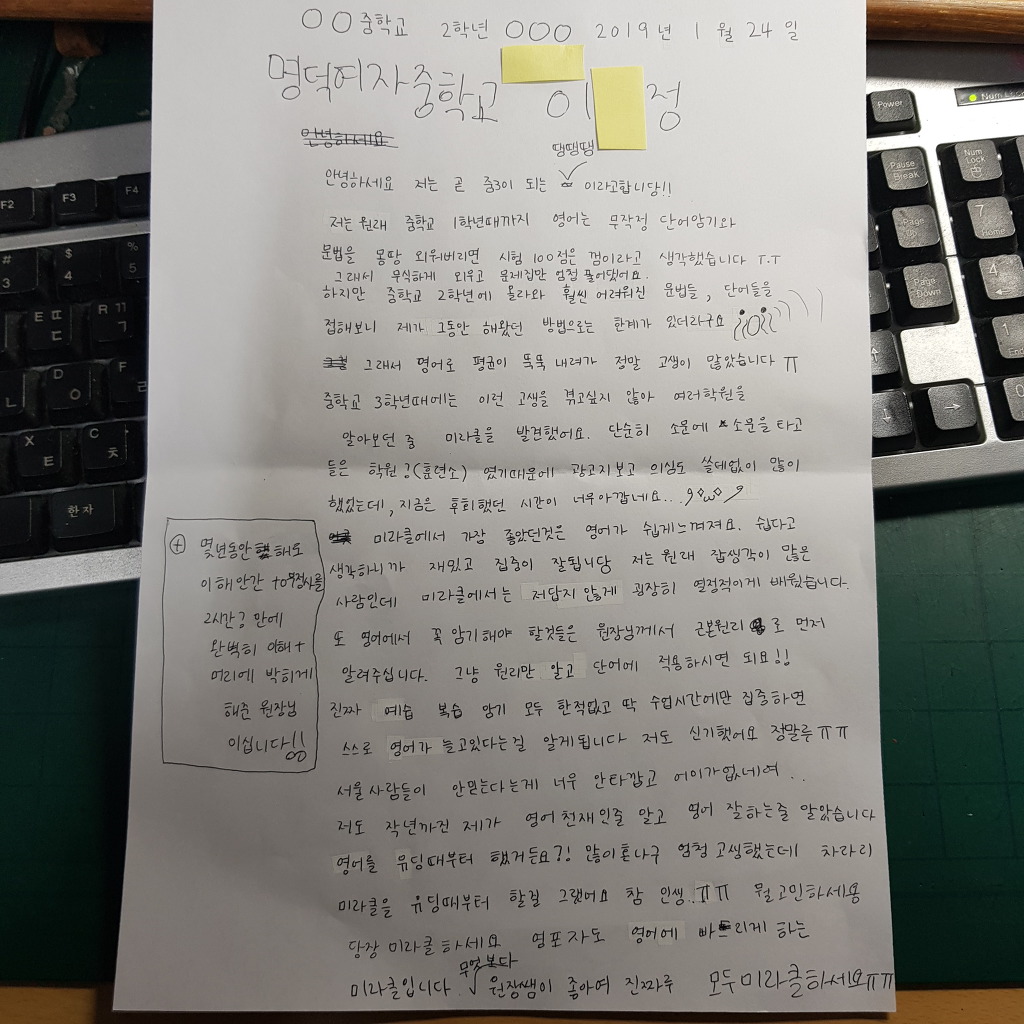 ○○중학교 2학년 ○○○ 2019년 1월 24일
명덕여자중학교 이 정
안녕하세요
땡땡땡
안녕하세요 저는 곧 중3이 되는 이라고합니당!!
저는 원래 중학교 1학년때까지 영어는 무작정 단어암기와
문법을 몽땅 외워버리면 시험 100점은 껌이라고 생각했습니다 T.T
그래서 무식하게 외우고 문제집만 엄청 풀어댔어요.
하지만 중학교 2학년에 올라와 훨씬 어려워진 문법들, 단어들을
접해보니 제가 그동안 해왔던 방법으로는 한계가 있더라구요
그래서 영어로 평균이 뚝뚝 내려가 정말 고생이 많았습니다 ㅠ
중학교 3학년때에는 이런 고생을 겪고싶지 않아 여러학원을
알아보던 중 미라클을 발견했어요. 단순히 소문에 소문을 타고
들은 학원?(훈련소) 였기때문에 광고지보고 의심도 쓸데없이 많이
했었는데, 지금은 후회했던 시간이 너무아깝네요...
미라클에서 가장 좋았던것은 영어가 쉽게느껴져요. 쉽다고
생각하니까 재밌고 집중이 잘됩니당 저는 원래 잡생각이 많은
사람인데 미라클에서는 저답지 않게 굉장히 열정적이게 배웠습니다.
또 영어에서 꼭 암기해야 할것들은 원장님께서 근본원리로 먼저
알려주십니다. 그냥 원리만 알고 단어에 적용하시면 되요!!
진짜 예습 복습 암기 모두 한적없고 딱 수업시간에만 집중하면
스스로 영어가 늘고있다는걸 알게됩니다 저도 신기했어요 정말루ㅠㅠ
서울사람들이 안믿는다는게 너무 안타깝고 어이가없네여..
저도 작년까진 제가 영어천재인줄 알고 영어 잘하는줄 알았습니다
영어를 유딩때부터 했거든요?! 많이혼나구 엄청 고생했는데 차라리
미라클을 유딩때부터 할걸 그랬어요 참 인생..ㅠㅠ 뭘고민하세용
당장 미라클하세요 영포자도 영어에 빠트리게 하는
무엇보다
미라클입니다. 원장쌤이 좋아여 진짜루 모두미라클하세요ㅠㅠ
+ 몇년동안 해도
이해안간 to부정사를
2시간? 만에
완벽히 이해+
머리에 박히게
해준 원장님
이십니다!!
F2
F3
F4
#
3
$
4
%
5
E ㄸ
ㄷ
R ㄲ
ㄱ
D
ㅇ
F
ㄴ
X
ㅌ
C
ㅊ
한자
Power
Num Loc
Pause
Break
Num
Lock
Page
Up
7
Home
Page
Down
4
1
End